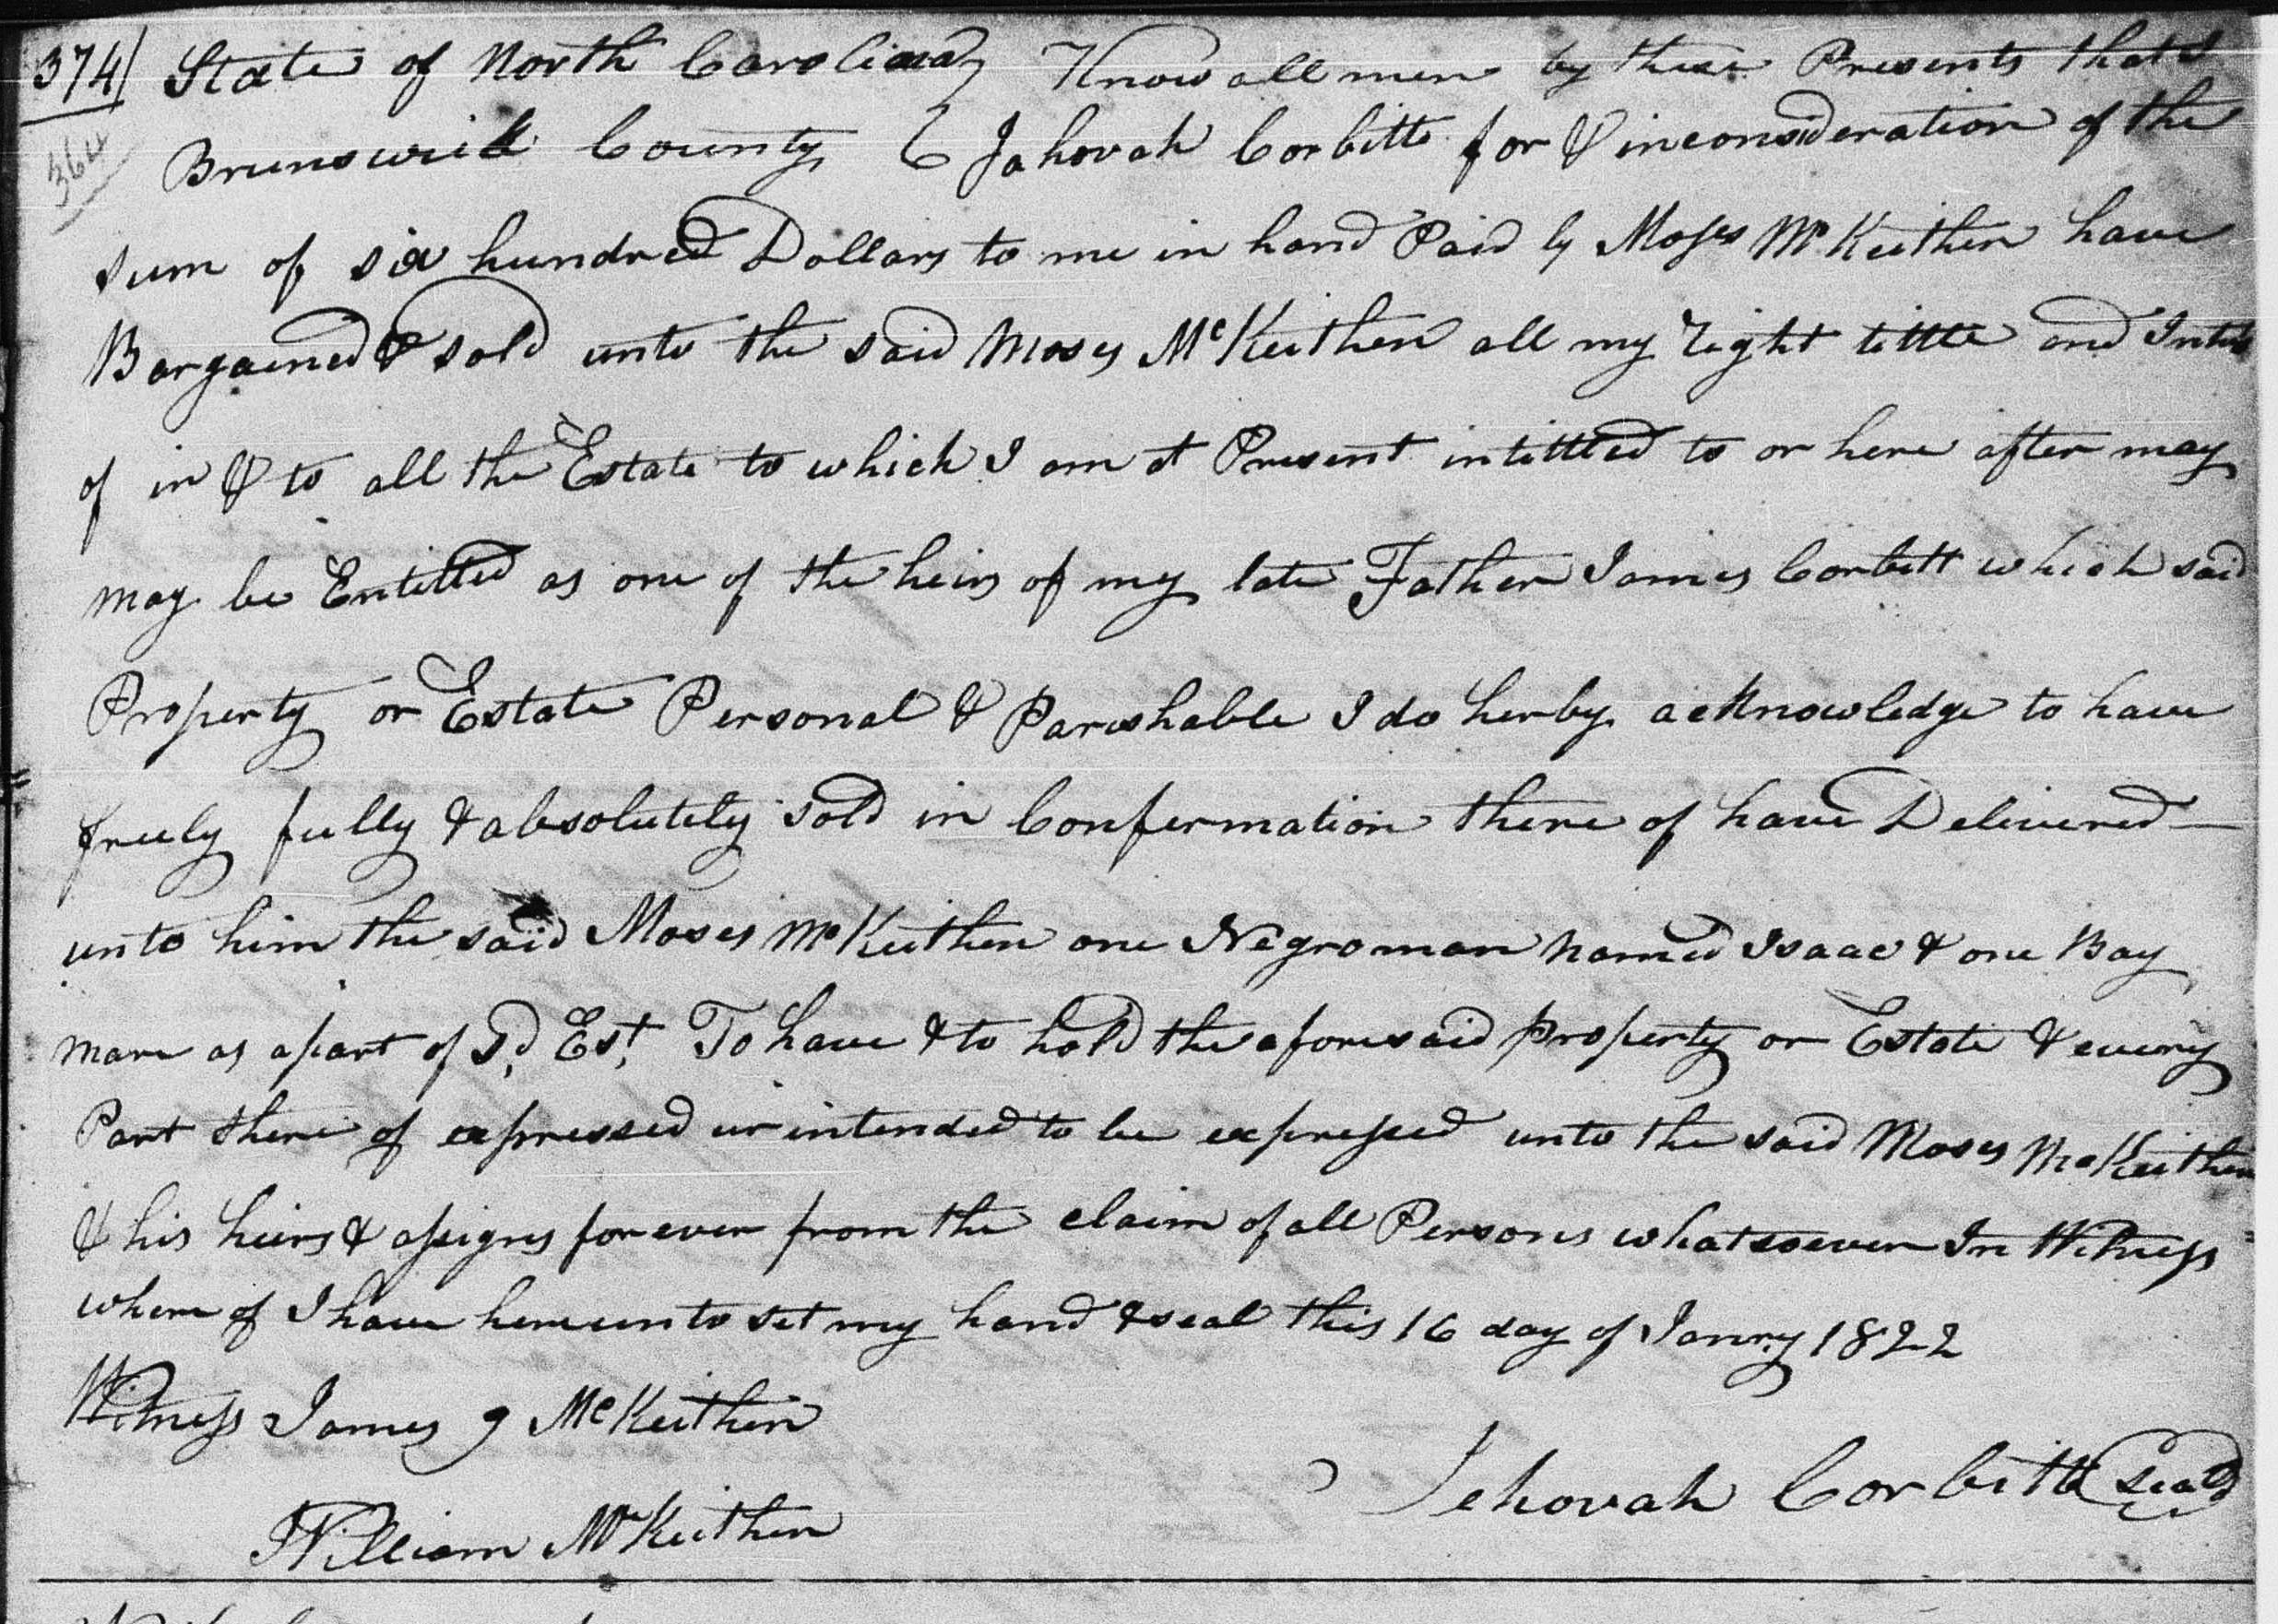 374 State of North Carolina Know all men by these Presents that I
364 Brunswick County Jahovah Corbitt for & inconsideration of the
sum of six hundred Dollars to me in hand Paid by Moses McKeithen have
Bargained & sold unto the said Moses McKeithen all my right tittle and Intrs
of in & to all the Estate to which I am at Present intittled to or here after may
may be Entitled as one of the heirs of my late Father James Corbett which said
Property or Estate Personal & Parishable I do herby acknowledge to have
freely fully & absolutely sold in Confermation there of have Delivered
unto him the said Moses McKeithen one Negro man named Isaac & one Bay
mare as apart of Sd. Est. To have & to hold the aforesaid property or Estate & every
Part there of expressed or intended to be expressed unto the said Moses McKeithen
& his heirs & assigns for ever from the claim of all Persons whatsoever In Witness
where of I have hereunto set my hand & seal this 16 day of Janry 1822
Witness James J McKeithen
Jehovah Corbitt Seald
William McKeithen